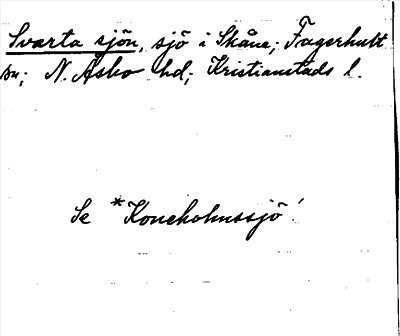 Svarta sjön, sjö i Skåne; Fagerhult
sn; N. Åsbo hd; Kristianstads l.
Se *Konehohussjö!